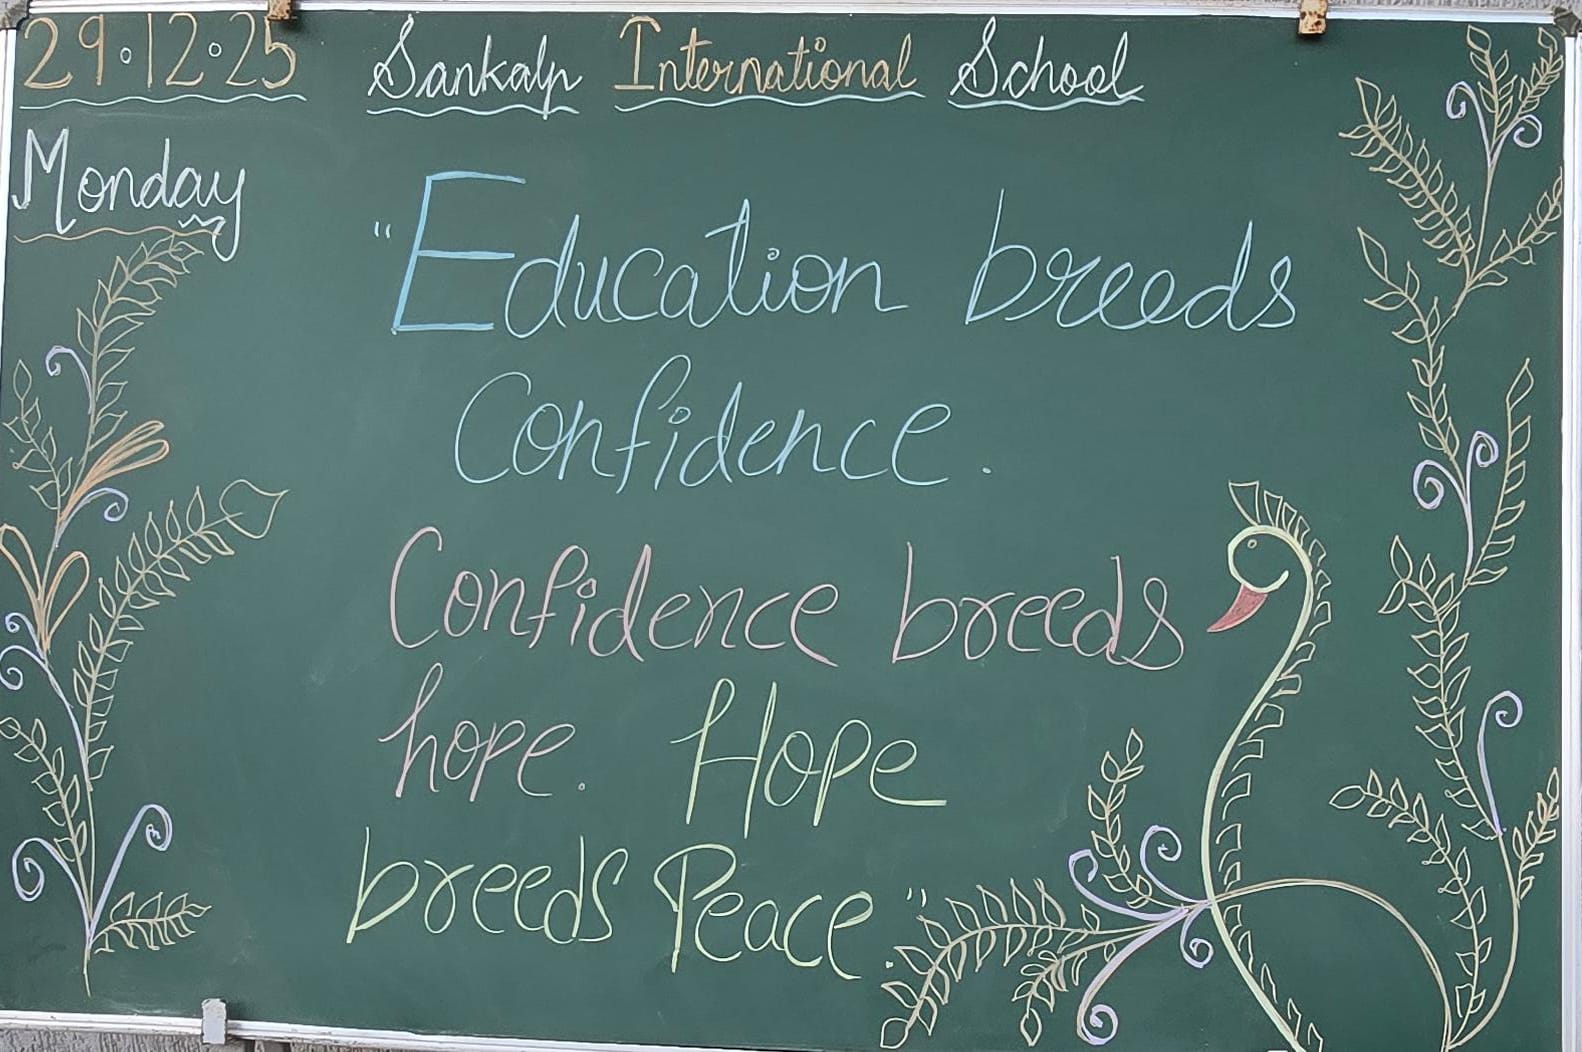 29.12.25 Sankalp International School
Monday
"Education breeds
Confidence.
Confidence breeds
hope. Hope
breeds Peace."